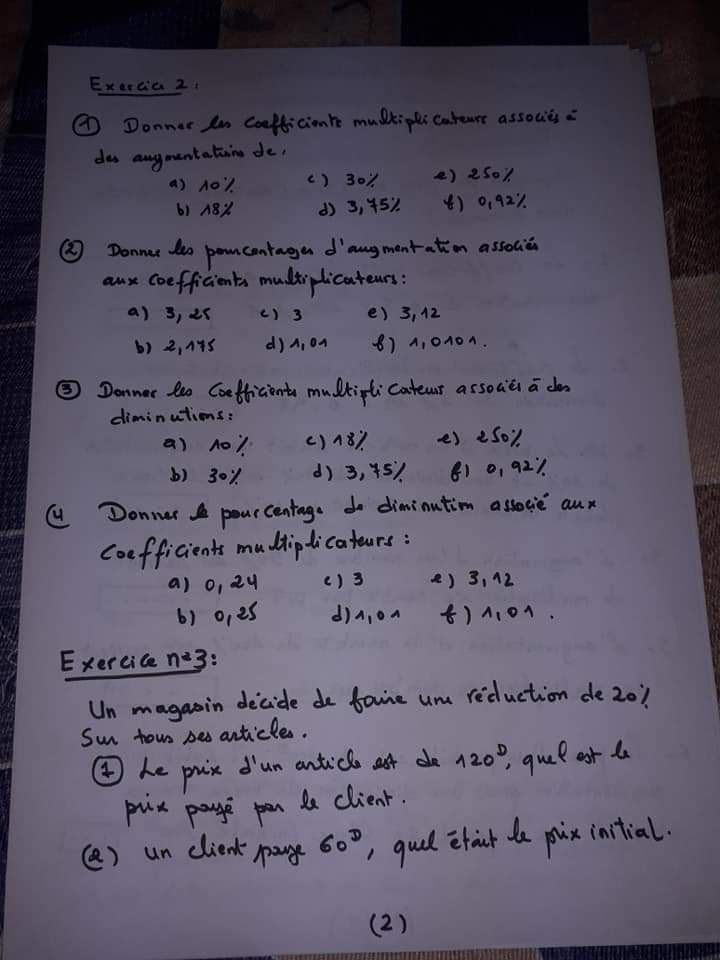 Exercice 2 :
① Donner les coefficients multiplicateurs associés à
des augmentations de,
a) 10% c) 30% e) 250%
b) 18% d) 3,75% f) 0,92%
② Donner les pourcentages d'augmentation associés
aux coefficients multiplicateurs :
a) 3,25 c) 3 e) 3,12
b) 2,175 d) 1,01 f) 1,0101.
③ Donner les coefficients multiplicateurs associés à des
diminutions :
a) 10% c) 18% e) 250%
b) 30% d) 3,75% f) 0,92%
④ Donner le pourcentage de diminution associé aux
coefficients multiplicateurs :
a) 0,24 c) 3 e) 3,12
b) 0,25 d) 1,01 f) 1,01.
Exercice n=3 :
Un magasin décide de faire une réduction de 20%
Sur tous ses articles.
① Le prix d'un article est de 120ᴰ, quel est le
prix payé par le client.
(2) un client paye 60ᴰ, quel était le prix initial.
(2)